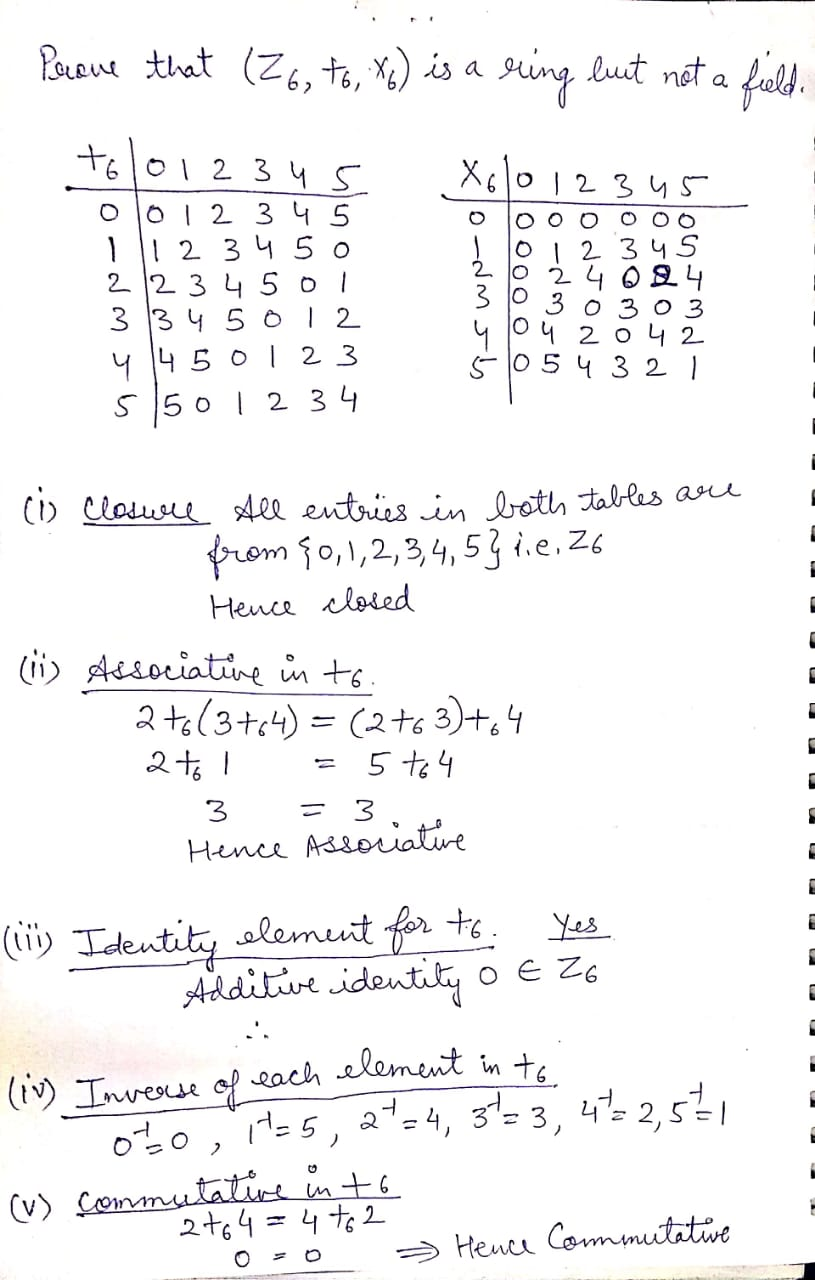 Prove that (Z6, +6, X6) is a ring but not a field.
+6 | 0 1 2 3 4 5
0 | 0 1 2 3 4 5
1 | 1 2 3 4 5 0
2 | 2 3 4 5 0 1
3 | 3 4 5 0 1 2
4 | 4 5 0 1 2 3
5 | 5 0 1 2 3 4
X6 | 0 1 2 3 4 5
0 | 0 0 0 0 0 0
1 | 0 1 2 3 4 5
2 | 0 2 4 0 2 4
3 | 0 3 0 3 0 3
4 | 0 4 2 0 4 2
5 | 0 5 4 3 2 1
(i) Closure All entries in both tables are
from {0,1,2,3,4,5} i.e. Z6
Hence closed
(ii) Associative in +6.
2 +6 (3 +6 4) = (2 +6 3) +6 4
2 +6 1 = 5 +6 4
3 = 3
Hence Associative
(iii) Identity element for +6. Yes
Additive identity 0 ∈ Z6
∴
(iv) Inverse of each element in +6
0⁻¹=0, 1⁻¹=5, 2⁻¹=4, 3⁻¹=3, 4⁻¹=2, 5⁻¹=1
(v) Commutative in +6
2 +6 4 = 4 +6 2
0 = 0 ⇒ Hence Commutative